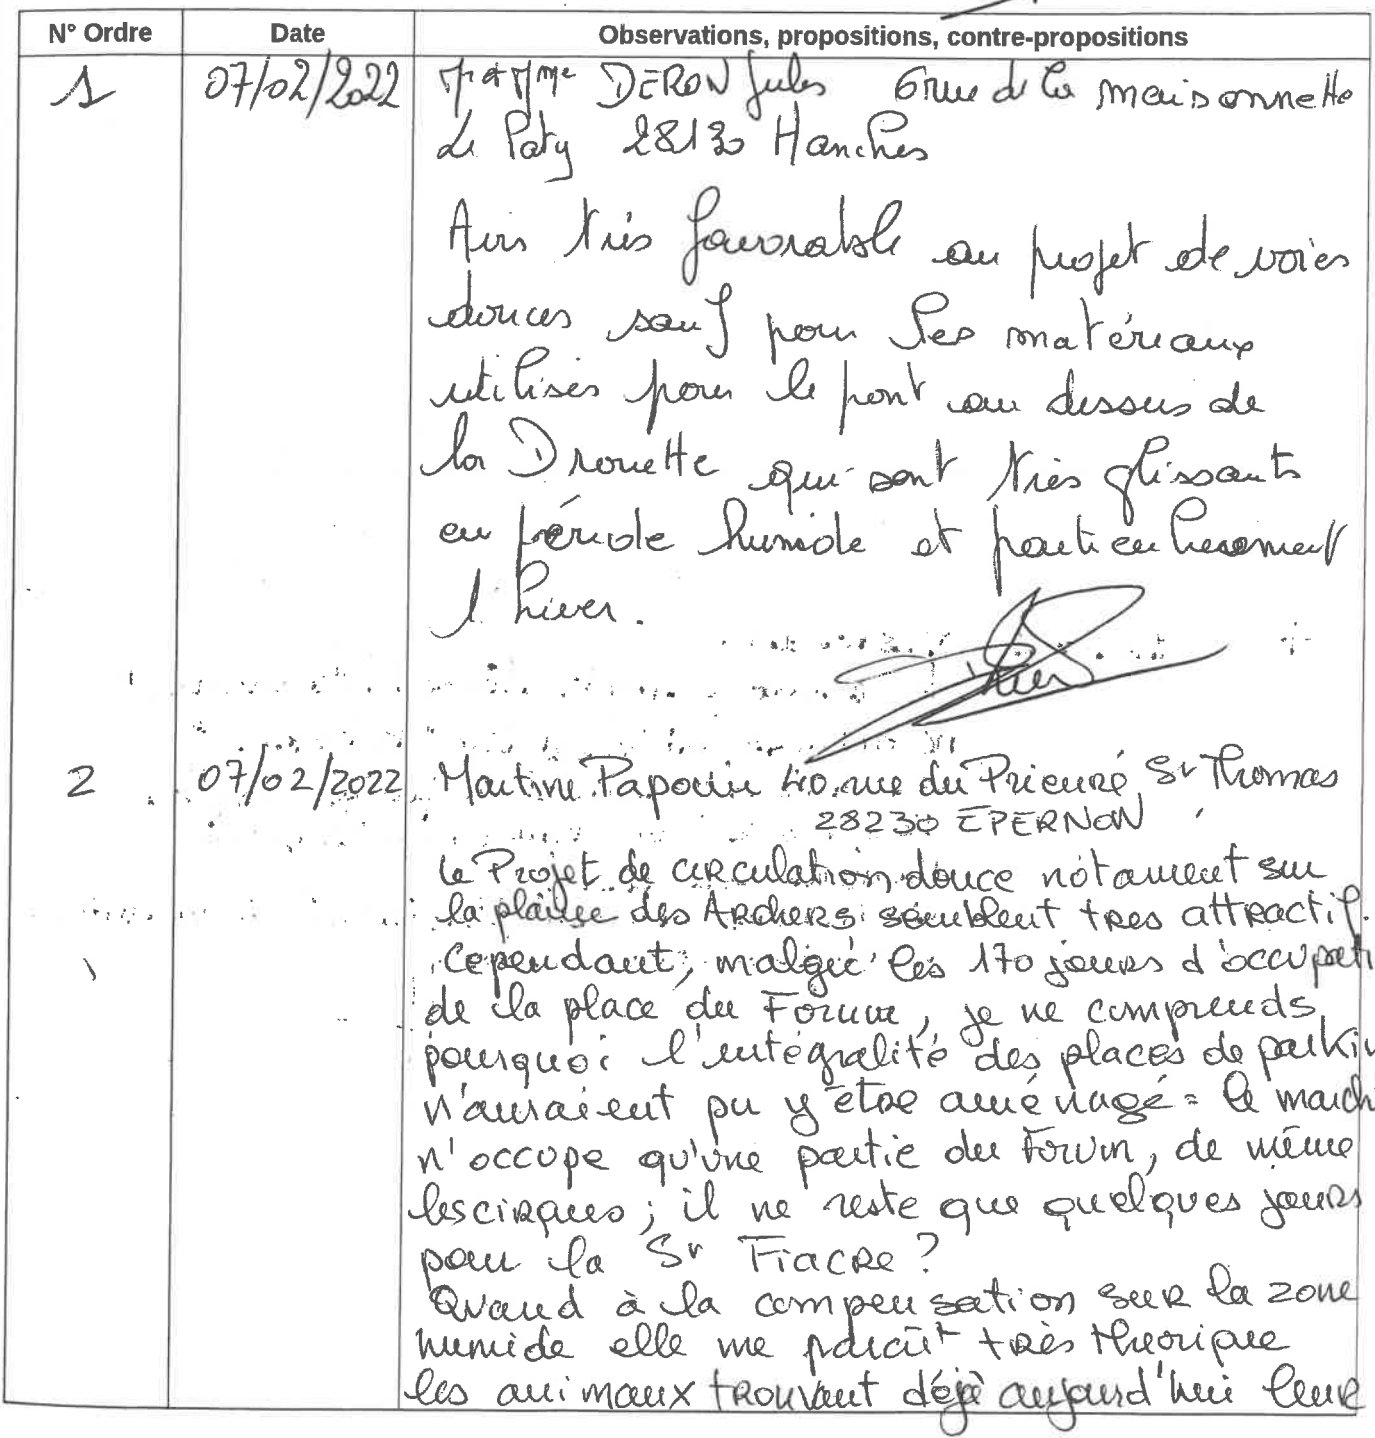 N° Ordre Date Observations, propositions, contre-propositions
1 07/02/2022 Mr et Mme DERON Jules 6 rue de la maisonnette
Le Paty 28130 Hanches
Avis très favorable au projet de voies
douces sauf pour les matériaux
utilisés pour le pont au dessus de
la Drouette qui sont très glissants
en période humide et particulièrement
l'hiver.
2 07/02/2022 Martine 40 rue du Prieuré St Thomas
28230 EPERNON
le Projet de circulation douce notament sur
la plaine des Archers semblent tres attractif.
Cependant, malgré les 170 jours d'occupati
de la place du Forum, je ne comprends
pourquoi l'intégralité des places de parkin
n'auraient pu y être aménagé = le march
n'occupe qu'une partie du Forum, de même
les cirques ; il ne reste que quelques jours
pour la St Fiacre ?
Quand à la compensation sur la zone
humide elle me parait très théorique
les animaux trouvant déjà aujourd'hui leur